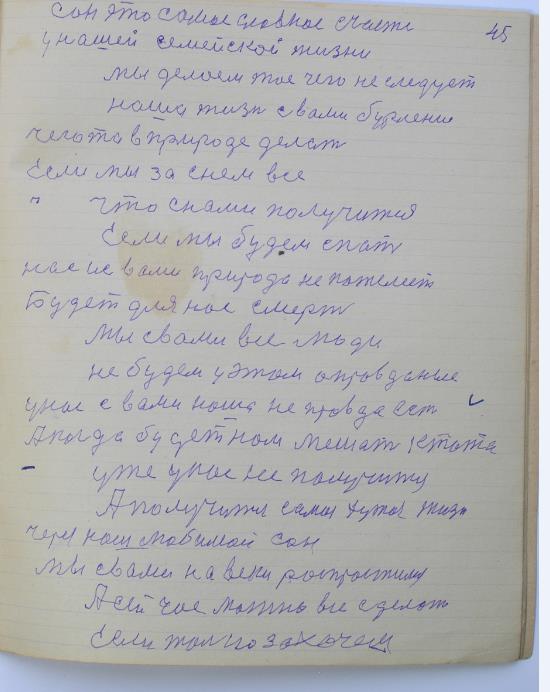 сон это самое главное счастье 45
у нашей семейской жизни
мы делаем тое чего не следует
наша жизн с вами бурление
чегота в природе делат
Если мы за снем все
" что снами получится
Если мы будем спат
нас и с вами природа не пожелеет
Будет для нас смерт
мы свами все люди
не будем у этом оправданые
унас с вами наша не правда ест
А когда будет нам мешат ктота
уже унас не получится
А получится самая худшая жизн
через наш любимой сон
мы свами на веки
А сей час можно все сделат
Если только захочем